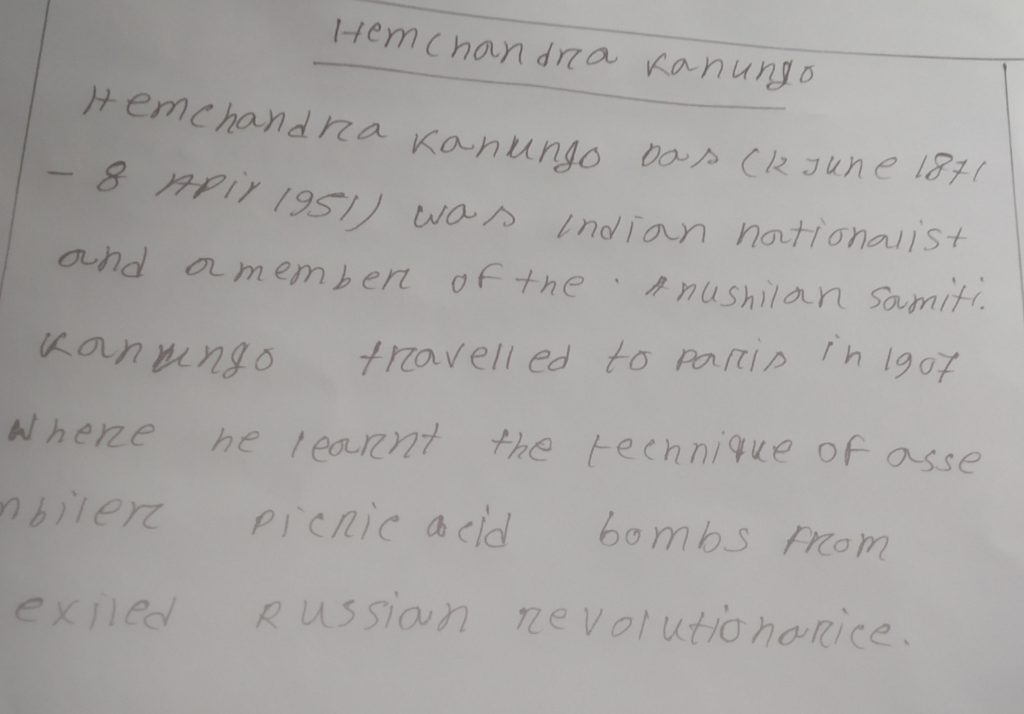 Hemchandra Kanungo
Hemchandra Kanungo Das (12 June 1871
- 8 Apir 1951) was Indian nationalist
and a member of the Anushilan Samiti.
Kanungo travelled to Paris in 1907
Where he learnt the technique of asse
mbiler picric acid bombs from
exiled Russian revolutionarice.